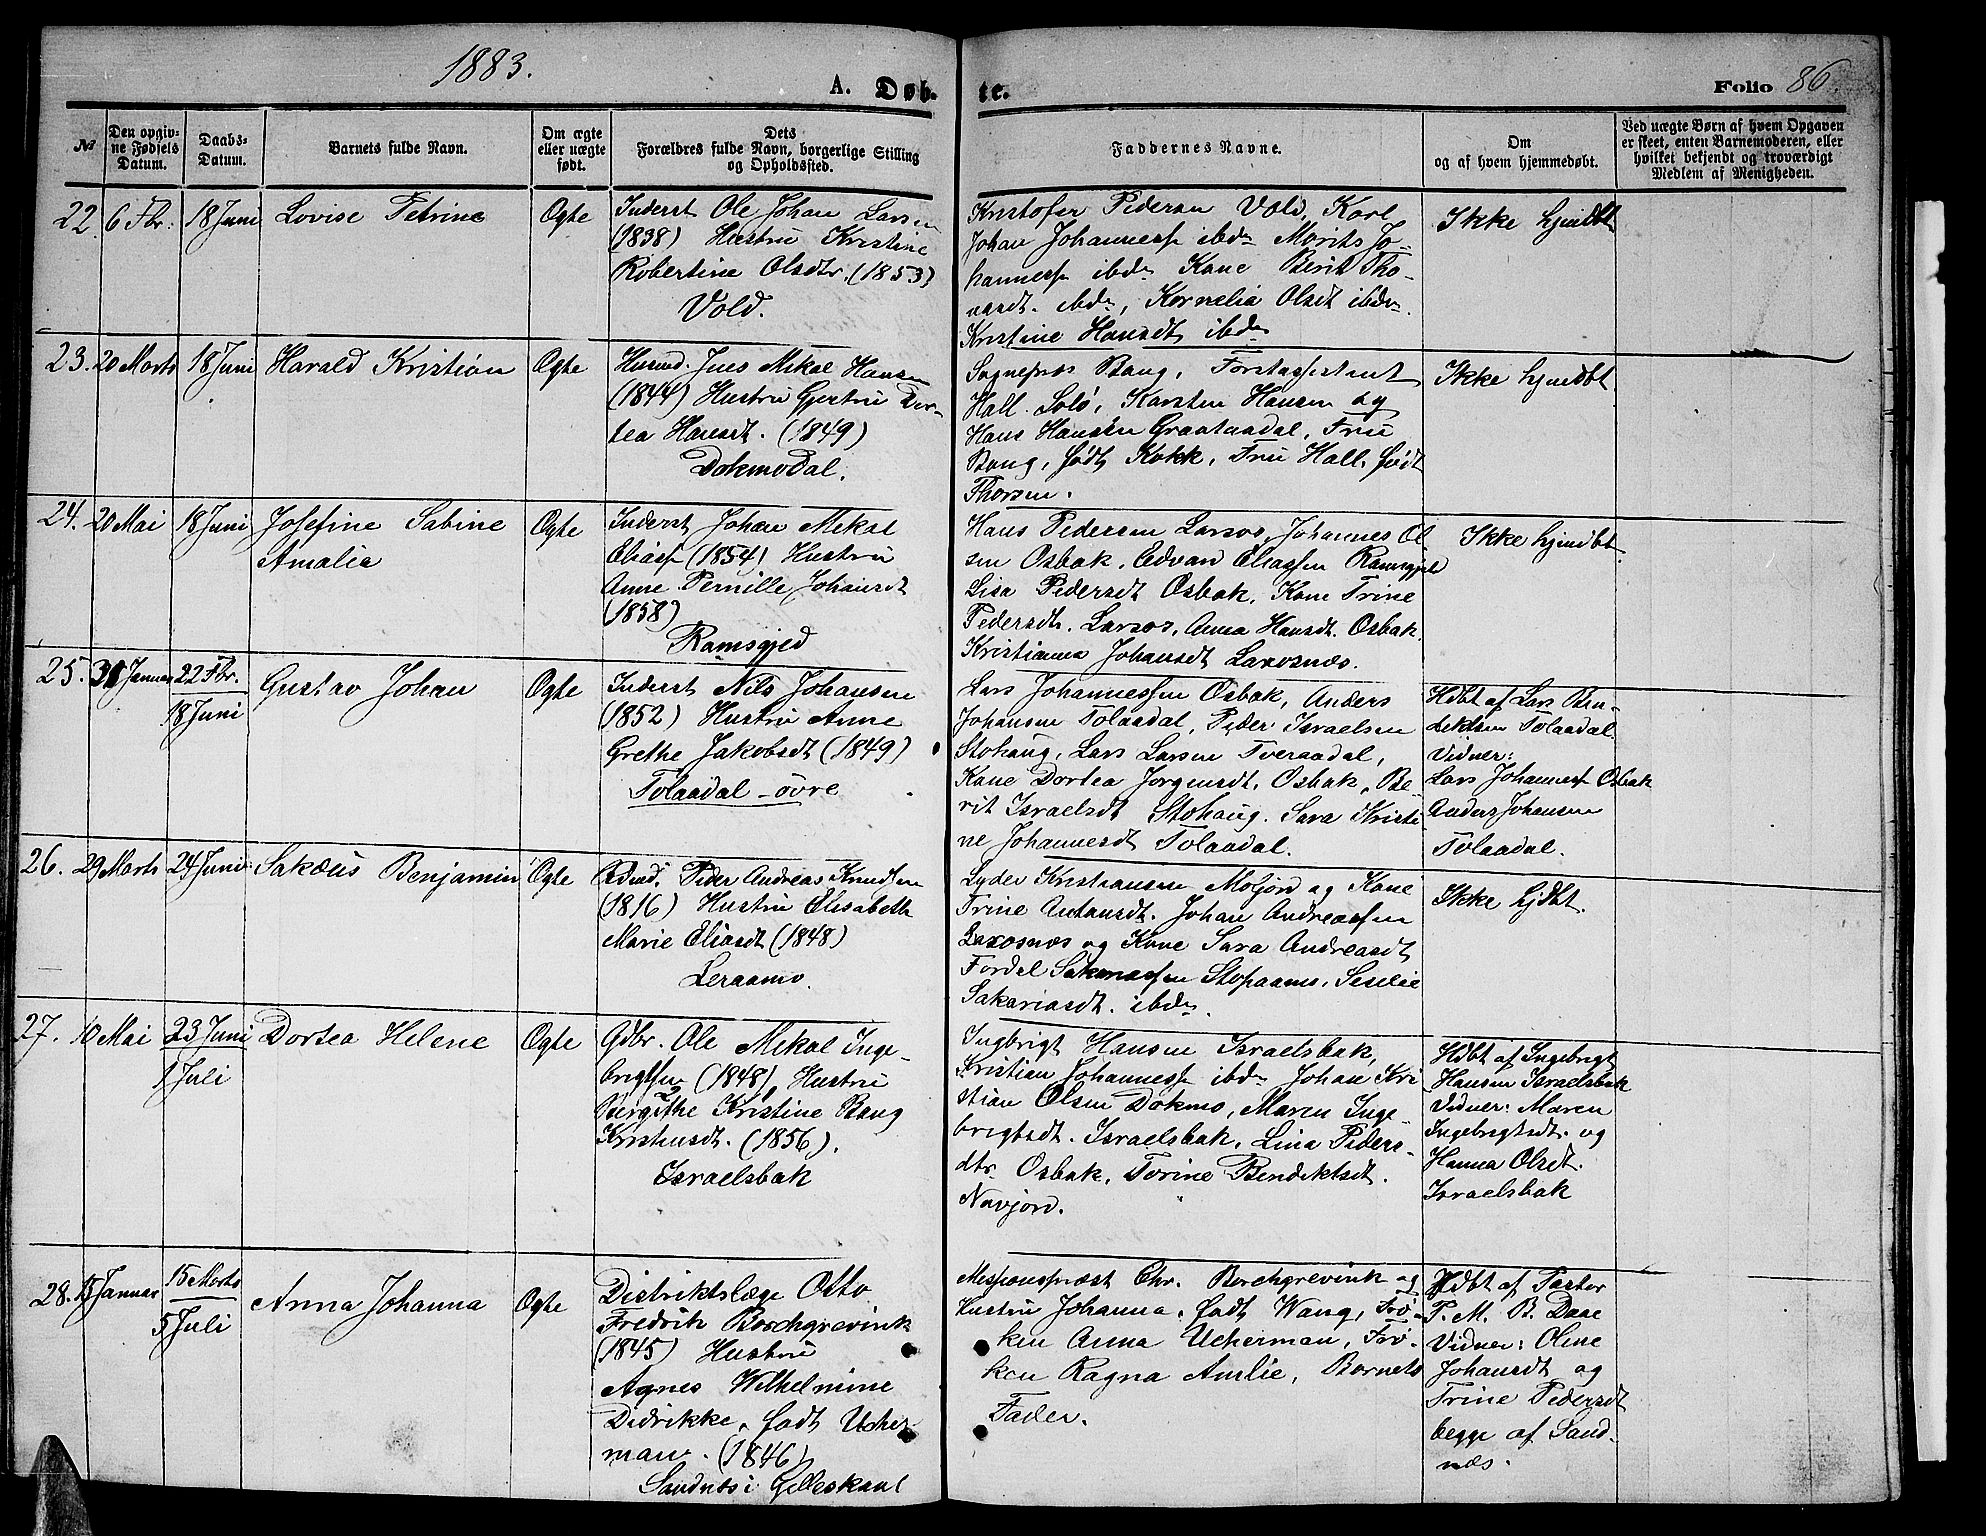 1883.
A. Døb- te.
Folio 86.
№
Den opgiv-
ne Fødsels
Datum.
Daabs-
Datum.
Barnets fulde Navn.
Om ægte
eller uægte
født.
Dets
Forældres fulde Navn, borgerlige Stilling
og Opholdsted.
Faddernes Navne.
Om
og af hvem hjemmedøbt.
Ved uægte Børn af hvem Opgaven
er skeet, enten Barnemoderen, eller
hvilket bekjendt og troværdigt
Medlem af Menigheden.
22. 6 Fbr. 18 Juni Lovise Petrine Ægte
Inderst Ole Johan Larsen
(1838) Hustru Kristine
Robertine Olsdtr. (1853)
Vold.
Kristofer Pedersen Vold, Karl
Johan Johannessen ibdm Morits Jo-
hannessen ibdm Kone Berit Tho-
masdt. ibdm, Kornelia Olsdt ibdm.
Kristine Hansdt ibdm
Ikke hjmdbt
23. 20 Marts 18 Juni Harald Kristian Ægte
Husmd. Jens Mikal Hansen
(1844) Hustru Gjertru Dor-
tea Hansdt. (1849)
Dokmodal.
Sognepræs Bang, Forstassistent
Hall. Solø, Karsten Hansen og
Hans Hansen Graataadal, Fru
Bang, født Kokk, Fru Hall, født
Thorsen.
Ikke hjmdbt
24. 20 Mai 18 Juni Josefine Sabine
Amalie
Ægte
Inderst Johan Mikal
Eliass (1854) Hustru
Anne Pernille Johansdt
(1858)
Ramsgjed
Hans Pedersen Larsos, Johannes Ol-
sen Osbak, Edvard Eliassen Ramsgjed
Lisa Pedersdt Osbak, Kone Trine
Pedersdt. Larsos, Anna Hansdt. Osbak
Kristianna Johansdt Laxosnæs.
Ikke hjmdbt
25. 31 Januar 22 Fbr.
18 Juni
Gustav Johan Ægte
Inderst Nils Johansen
(1852) Hustru Anne
Grethe Jakobsdt (1849)
Tolaadal - øvre
Lars Johannessen Osbak, Anders
Johansen Tolaadal, Peder Israelsen
Stohaug, Lars Larsen Tveraadal,
Kone Dortea Jørgensdt. Osbak, Be-
rit Israelsdt Stohaug. Sara Kristi-
ne Johannesdt Tolaadal.
Hdbt af Lars Ben-
diktsen Tolaadal.
Vidner:
Lars Johanness Osbak
Anders Johansen
Tolaadal.
26. 29 Marts 24 Juni Sakæus Benjamin Ægte
Gdmd. Peder Andreas Knudsen
(1816) Hustru Elisabeth
Marie Eliasdt (1848)
Leraamo.
Lyder Kristiansen Moljord og Kone
Trine Antonsdt. Johan Andreassen
Laxosnæs og Kone Sara Andreasdt
Fordel Sakariassen Stopaamo, Seselie
Sakariasdt. ibdm.
Ikke hjdbt.
27. 10 Mai 23 Juni
1 Juli
Dortea Helene Ægte
Gdbr. Ole Mikal Inge-
brigtsen (1848) Hustru
Bergithe Kristine Bang
Kristensdt. (1856).
Israelsbak
Ingbrigt Hansen Israelsbak,
Kristian Johanness ibdm Johan Kri
stian Olsen Dokmo, Maren Inge-
brigtsdt. Israelsbak, Lina Peders-
dtr. Osbak, Torine Bendiktsdt.
Navjord.
Hdbt af Ingebrigt
Hansen Israelsbak
Vidner: Maren
Ingebrigtsdt. og
Hanna Olsdt.
Israelsbak
28. 15 Januar 15 Marts
5 Juli
Anna Johanna Ægte
Distriktslæge Otto
Fredrik Borchgrevink
(1845) Hustru
Agnes Wilhelmine
Didrikke, født Ucher-
man. (1846)
Sandnes i Gilleskaal
Missionspræst Chr. Borchgrevink og
Hustru Johanna, født Wang, Frø-
ken Anna Ucherman, Frø-
ken Ragna Amlie, Barnets
Fader.
Hdbt af Pastor
P. M. B. Daae
Vidner: Oline
Johansdt og
Trine Pedersdt
begge af Sand-
næs.